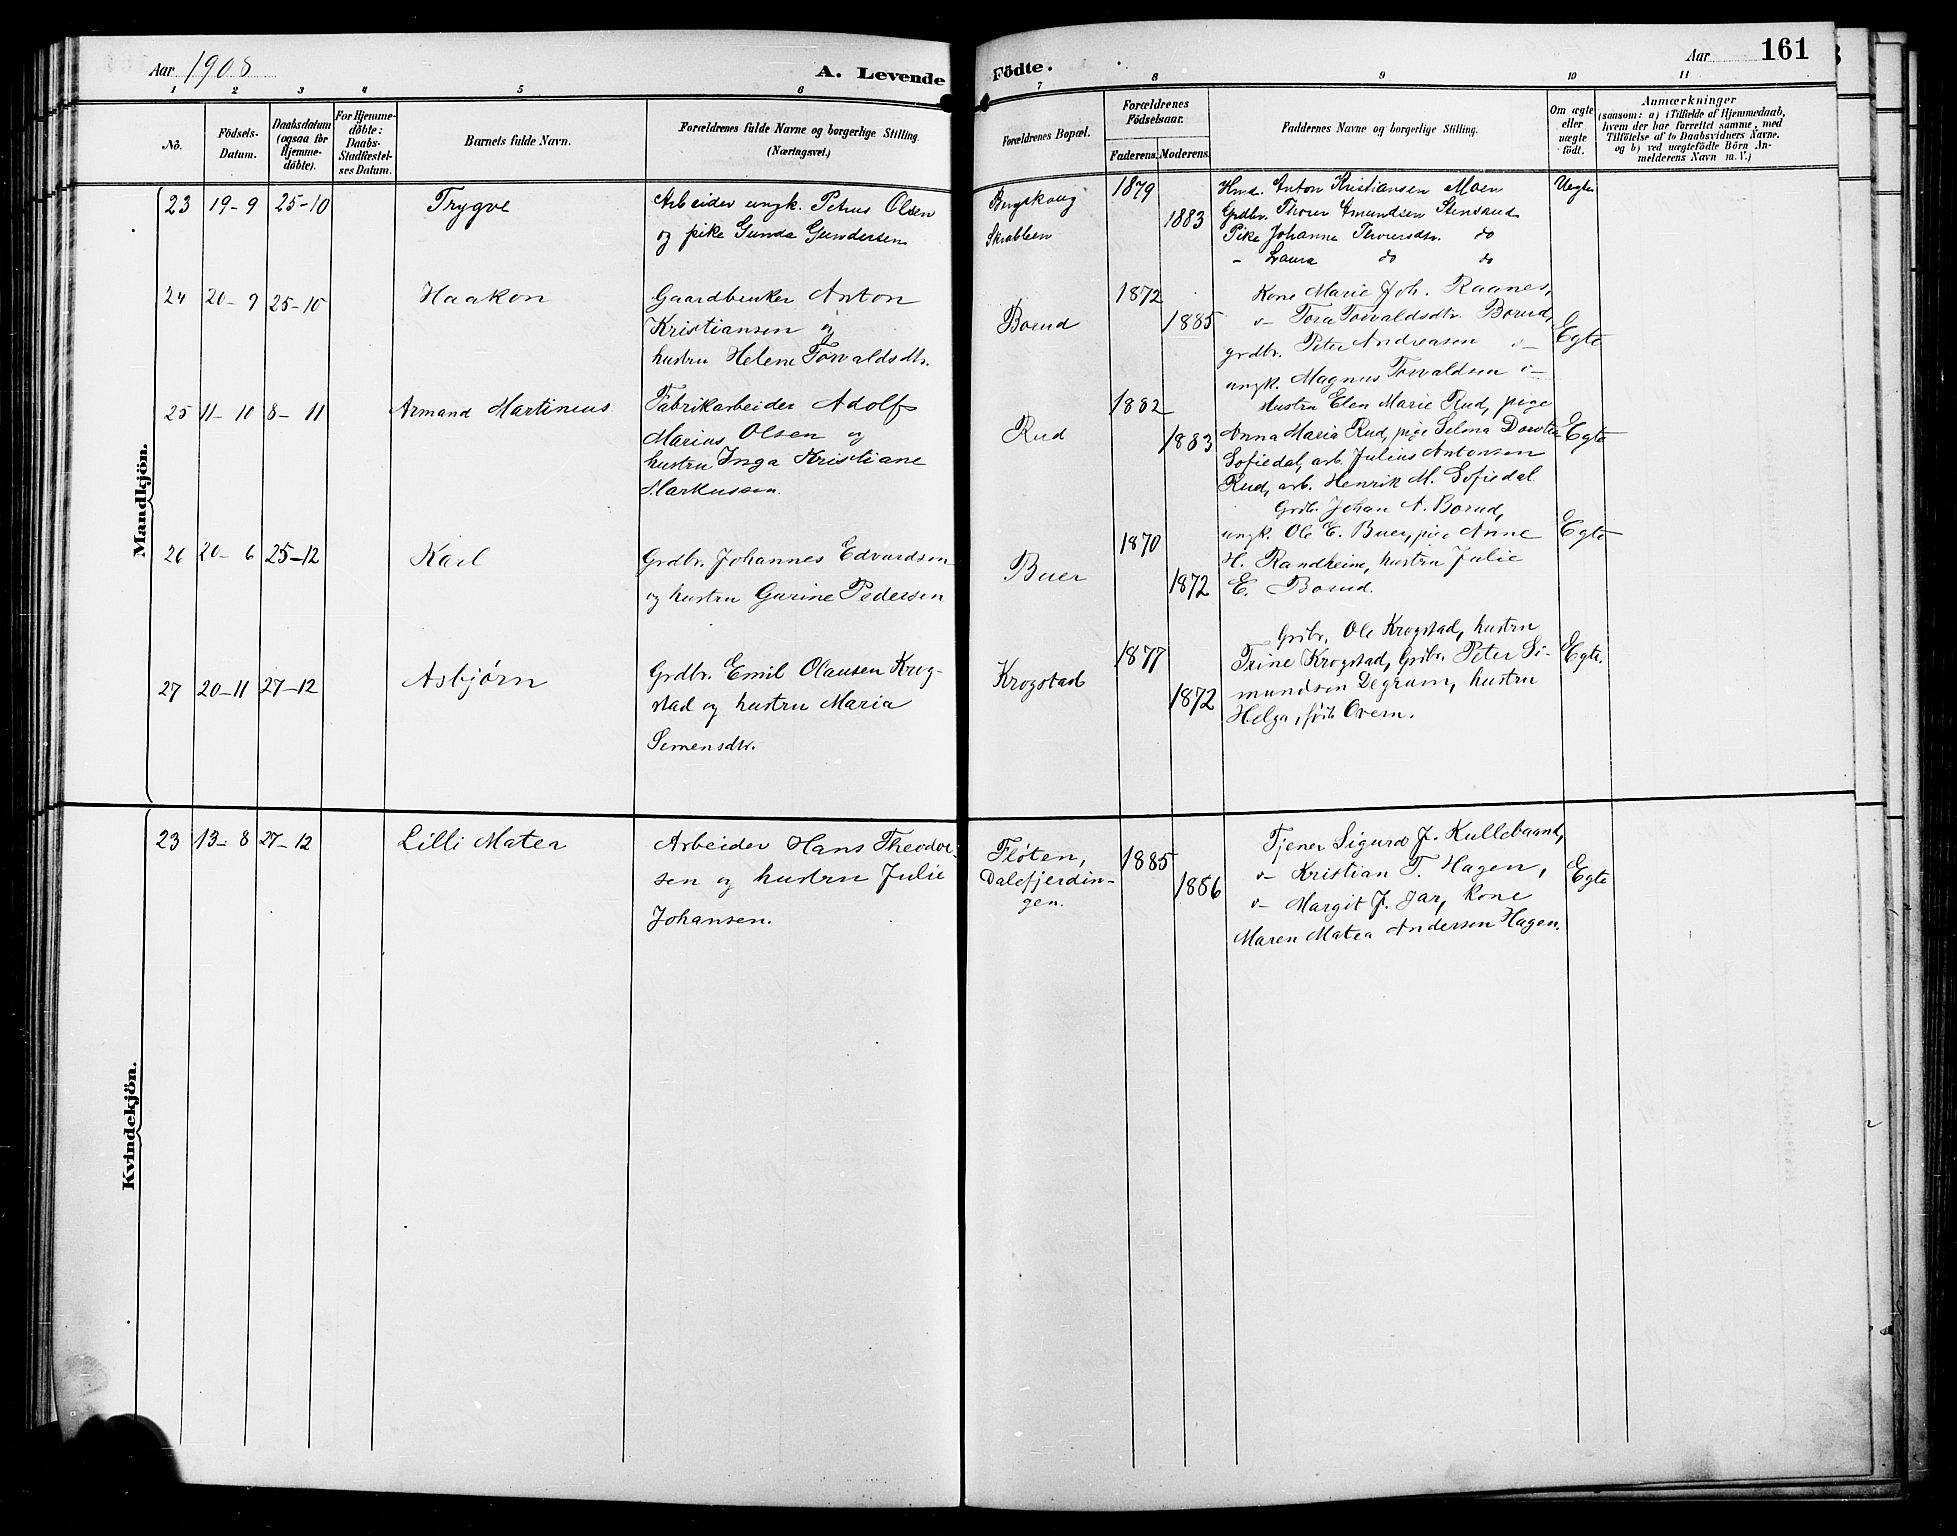 Aar 1908
A. Levende
Födte.
Aar
161
1 2 3 4 5 6 7 8 9 10 11
No.
Födsels-
Datum.
Daabsdatum
(ogsaa for
Hjemme-
döbte).
For Hjemme-
döbte:
Daabs-
Stadfæstel-
ses Datum.
Barnets fulde Navn.
Forældrenes fulde Navne og borgerlige Stilling.
(Næringsvei.)
Forældrenes Bopæl.
Forældrenes
Födselsaar.
Faderens. Moderens.
Faddernes Navne og borgerlige Stilling.
Om ægte
eller
uægte
födt.
Anmærkninger
(saasom: a) i Tilfælde af Hjemmedaab,
hvem der har forrettet samme, med
Tilföielse af to Daabsvidners Navne.
og b) ved uægtefödte Börn An-
melderens Navn m. V.)
Mandkjön.
23 19-9 25-10 Trygve
Arbeider ungk. Petrus Olsen
og pike Gunda Gundersen
Bergskaug
Skrabben
1879
1883
Hmd. Anton Kristiansen Moen
Grdbr. Thorer Amundsen Stensrud
Pike Johanne Thorersdtr. do
- Laura do do
Uegte
24 20-9 25-10 Haakon
Gaardbruker Anton
Kristiansen og
hustru Helene Torvaldsdtr.
Borud
1872
1885
Kone Marie Joh. Raanes,
v- Tora Torvaldsdtr. Borud,
grdbr. Peter Andreasen v-
ungk. Magnus Torvaldsen v-
Egte
25 11-10 8-11 Armand Martinius
Fabrikarbeider Adolf
Marius Olsen og
hustru Inga Kristiane
Markussen.
Rud
1882
1883
Hustru Elen Marie Rud, pige
Anna Maria Rud, pige Selma Dorthea
Sofiedal, arb. Julius Antonsen
Rud, arb. Henrik M. Sofiedal
Egte
26 20-6 25-12 Karl
Grdbr. Johannes Edvardsen
og hustru Gurine Pedersen
Buer
1870
1872
Grdbr. Johan A. Borud,
ungk. Ole E. Buer, pige Anne
H. Randheim, hustru Julie
E. Borud.
Egte
27 20-11 27-12 Asbjørn
Grdbr. Emil Olausen Krog-
stad og hustru Maria
Semensdtr.
Krogstad
1877
1872
Grdbr. Ole Krogstad, hustru
Trine Krogstad, Grdbr. Peter Si-
mundsen Degrum, hustru
Helga, født Overn.
Egte.
Kvindekjön.
23 13-8 27-12 Lilli Matea
Arbeider Hans Theodor-
sen og hustru Julie
Johansen.
Fløten,
Dalefjerdin-
gen.
1885
1886
Tjener Sigurd J. Kullebaand,
v- Kristian T. Hagen,
v- Margit J. Jar, kone
Maren Matea Andersen Hagen.
Egte